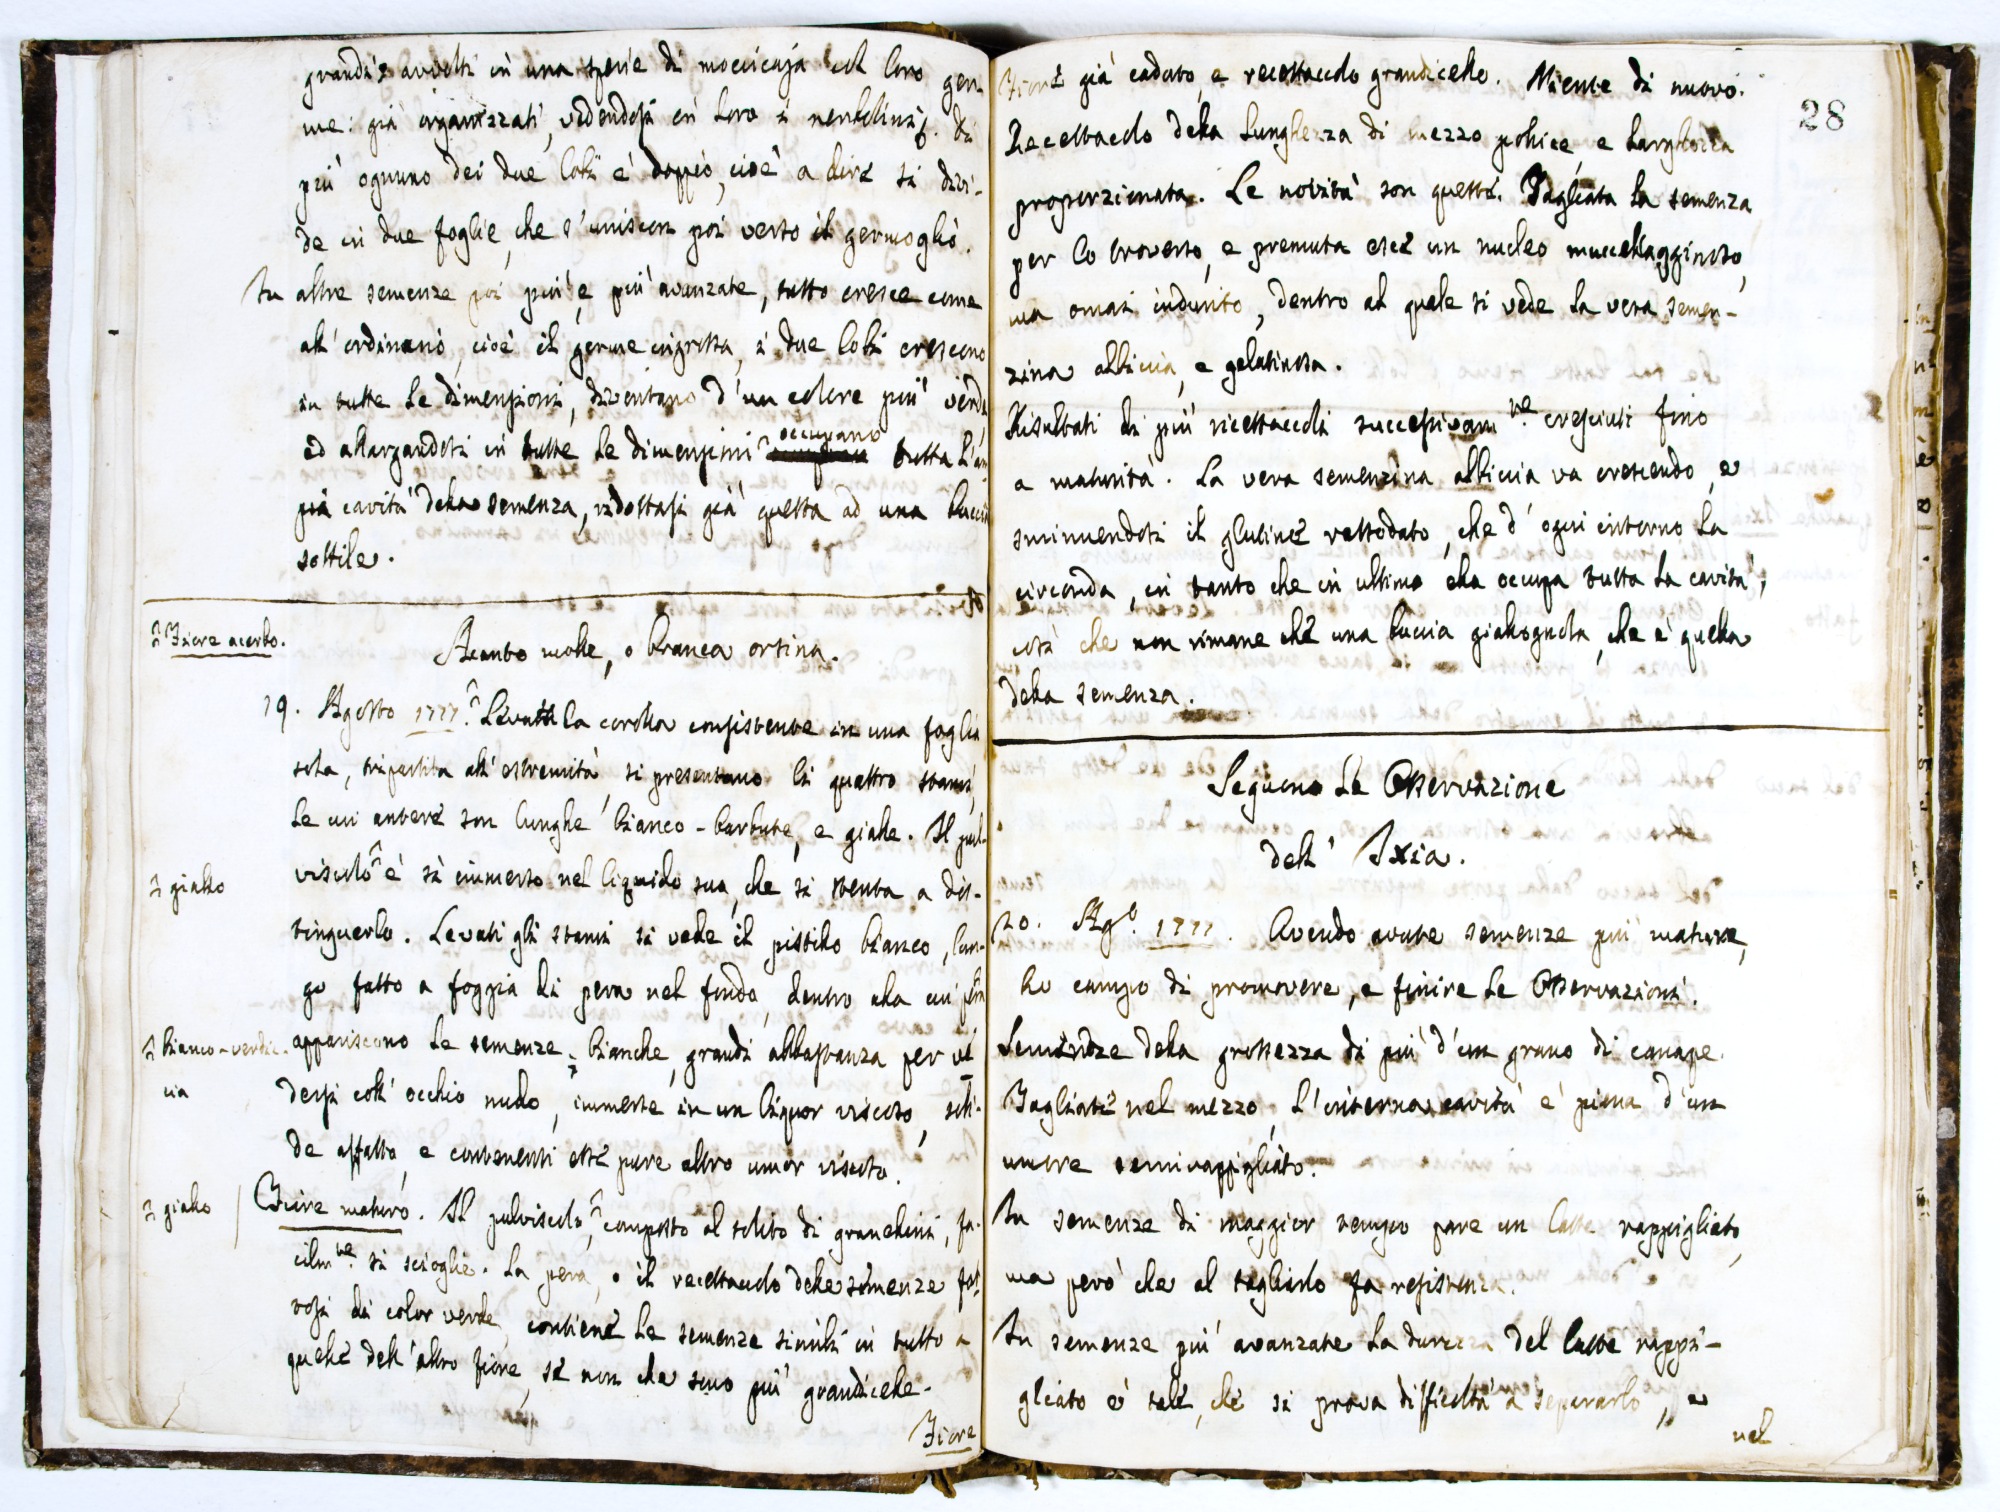 grandi e avvolti in una spezie di moccicaja col loro ger-
me: già organizzati, vedendosi in loro i nerbolini. di
più ognuno dei due lobi è doppio, cioè a dire si divi-
de in due foglie, che s'uniscon poi verso il germoglio.
In altre semenze poi più, e più avanzate, tutto cresce come
all'ordinario, cioè il germe ingrossa, i due lobi crescono
in tutte le dimensioni, diventano d'un colore più verde
ed allargandosi in tutte le dimensioni occupano tutta l'am-
pia cavità della semenza, ridottasi già questa ad una buccia
sottile.
Fiore acerbo.
Acanto molle, o branca orsina.
19. Agosto 1777. Levata la corolla consistente in una foglia
sola, tripartita all'estremità, si presentano li quattro stami,
le cui antere son lunghe bianco-barbute, e gialle. Il pul-
giallo
viscolo è sì immerso nel liquido suo, che si stenta a dis-
tinguerlo. Levati gli stami si vede il pistillo bianco, lun-
go fatto a foggia di pera nel fondo, dentro alla cui pera
bianco-verdic-
cia
appariscono le semenze, bianche, grandi abbastanza per ve
dersi coll'occhio nudo, immerse in un liquor viscoso, soli-
de affatto, e contenenti esse pure altro umor viscoso.
giallo
Fiore maturo. Il pulviscolo, composto al solito di granellini, fa-
cilm.te si scioglie. La pera, o il recettacolo delle semenze fat
tosi di color verde, contiene le semenze simili in tutto a
quelle dell'altro fiore, se non che sono più grandicelle.
Fiore
28
Fiore già caduto, e recettacolo grandicello. Niente di nuovo.
Recettacolo della lunghezza di mezzo pollice, e larghezza
proporzionata. Le novità son queste. Tagliata la semenza
per lo traverso, e premuta esce un nucleo muccellagginoso,
ma omai indurito, dentro al quale si vede la vera semen-
zina albiccia, e gelatinosa.
Risultati di più ricettacoli successivam.te cresciuti fino
a maturità. La vera semenzina albiccia va crescendo, e
sminuendosi il glutine rassodato, che d'ogni intorno la
circonda, in tanto che in ultimo ella occupa tutta la cavità,
così che non rimane che una buccia giallognola, che è quella
della semenza.
Seguono le Osservazione
dell' Ixia.
20. Ag.o 1777. Avendo avute semenze più mature,
ho campo di promovere, e finire le Osservazioni.
Semenze della grossezza di più d'un grano di canape.
Tagliate nel mezzo, l'interna cavità è piena d'un
umore semirappigliato.
In semenze di maggior tempo pare un latte rappigliato,
ma però che al tagliarlo fa resistenza.
In semenze più avanzate la durezza del latte rappi-
gliato è tale, che si prova difficoltà a separarlo, e
nel